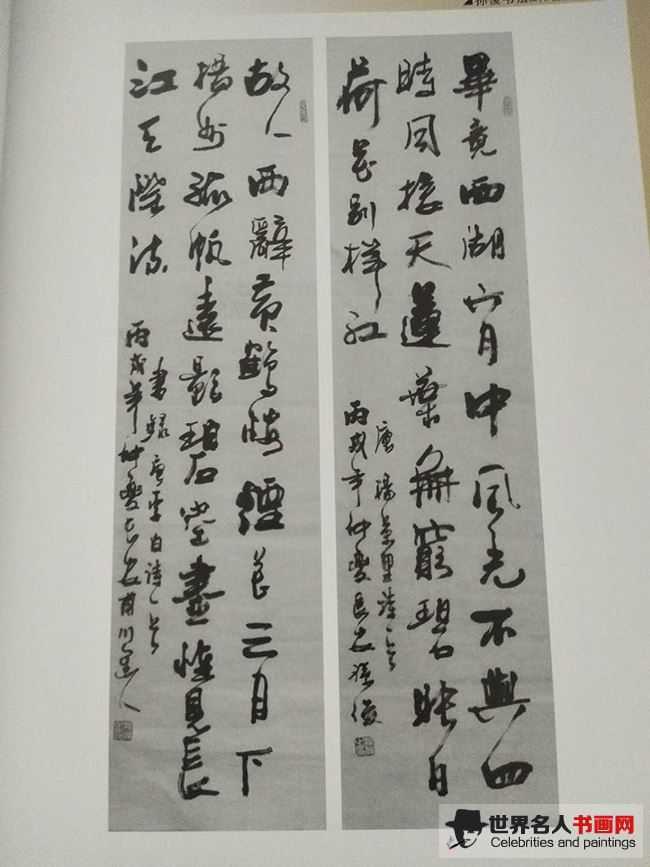 孙俊书法
畢竟西湖六月中風光不與四
時同接天蓮葉無窮碧映日
荷花別樣红
唐楊萬里詩一首
丙戌年仲夏長安孫俊
故人西辭黄鶴樓煙花三月下
揚州孤帆遠影碧空盡惟見長
江天際流
書録唐李白詩一首
丙戌年仲夏长安
世界名人书画网
Celebrities and paintings